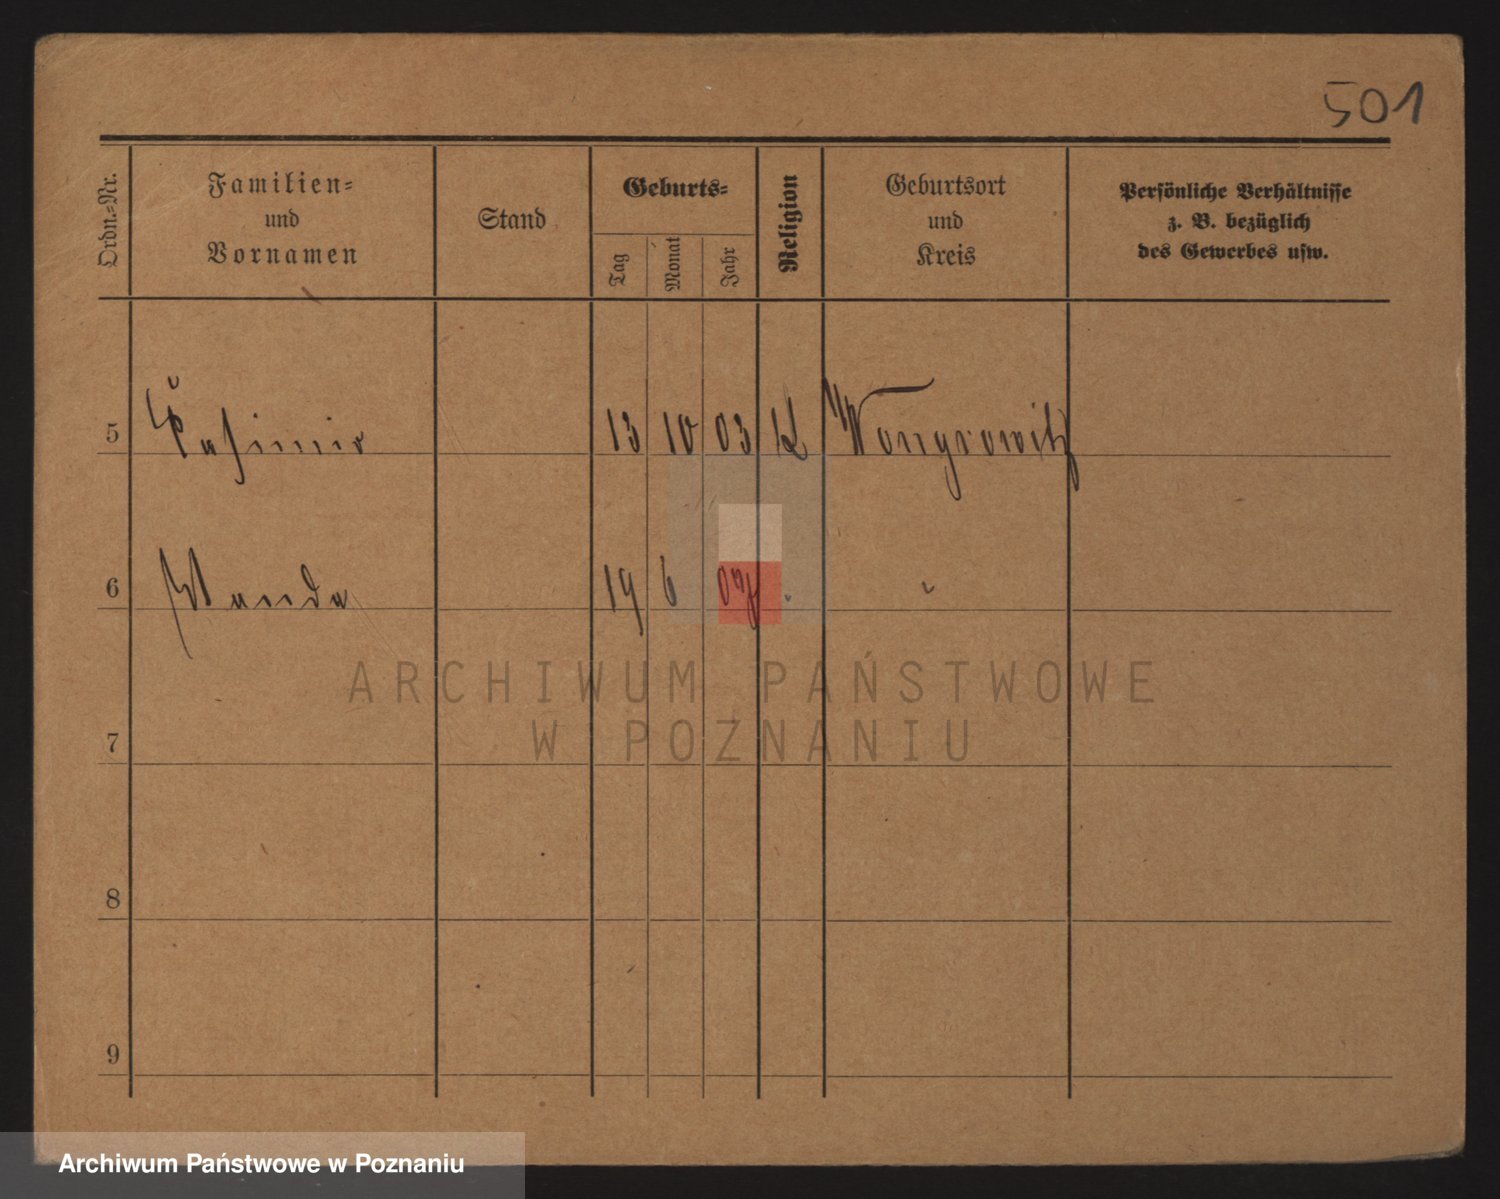 501
Ordn.-Nr.
Familien-
und
Vornamen
Stand
Geburts-
Tag
Monat
Jahr
Religion
Geburtsort
und
Kreis
Persönliche Verhältnisse
z. B. bezüglich
des Gewerbes usw.
5 Casimir 13 10 03 K Wongrowitz
6 Wanda 19 6 07 " "
ARCHIWUM PAŃSTWOWE
W POZNANIU
7
8
9
Archiwum Państwowe w Poznaniu